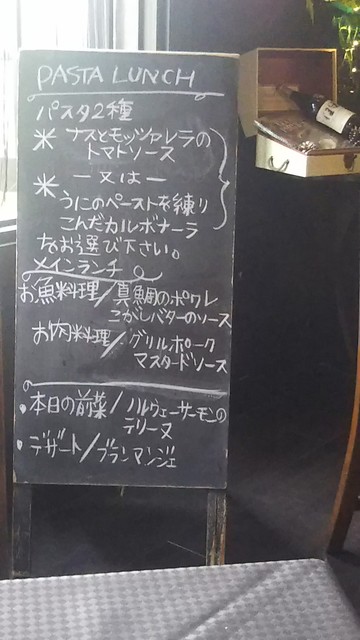 PASTA LUNCH
パスタ2種
* ナスとモッツァレラの
トマトソース
— 又は —
* うにのペーストを練り
こんだカルボナーラ
をお選び下さい。
メインランチ
お魚料理/真鯛のポワレ
こがしバターのソース
お肉料理/グリルポーク
マスタードソース
・本日の前菜/ノルウェーサーモンの
テリーヌ
・デザート/ブランマンジェ